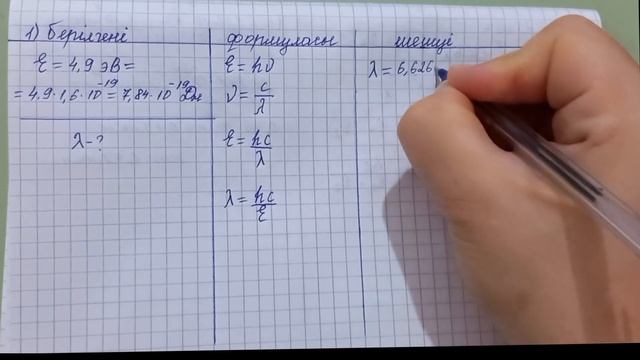 1) берілгені
E = 4,9 эВ =
= 4,9·1,6·10⁻¹⁹ = 7,84·10⁻¹⁹ Дж
λ - ?
формуласы
E = hν
ν = c/λ
E = hc/λ
λ = hc/E
шешуі
λ = 6,626